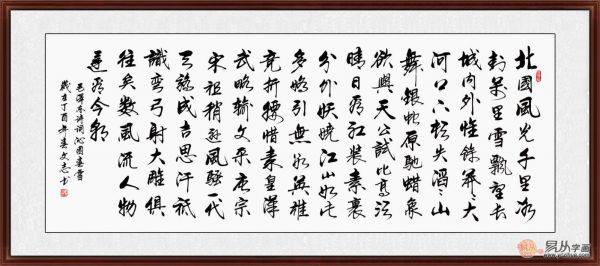 北國風光千里冰
封萬里雪飄望長
城內外惟餘莽々大
河上下頓失滔々山
舞銀蛇原馳蠟象
欲與天公試比高須
晴日看紅裝素裹
分外妖嬈江山如此
多嬌引無數英雄
競折腰惜秦皇漢
武略輸文采唐宗
宋祖稍遜風騷一代
天驕成吉思汗祇
識彎弓射大雕俱
往矣數風流人物
還看今朝
毛澤東詩詞沁園春雪
歲在丁酉年婁文志书
易从字画